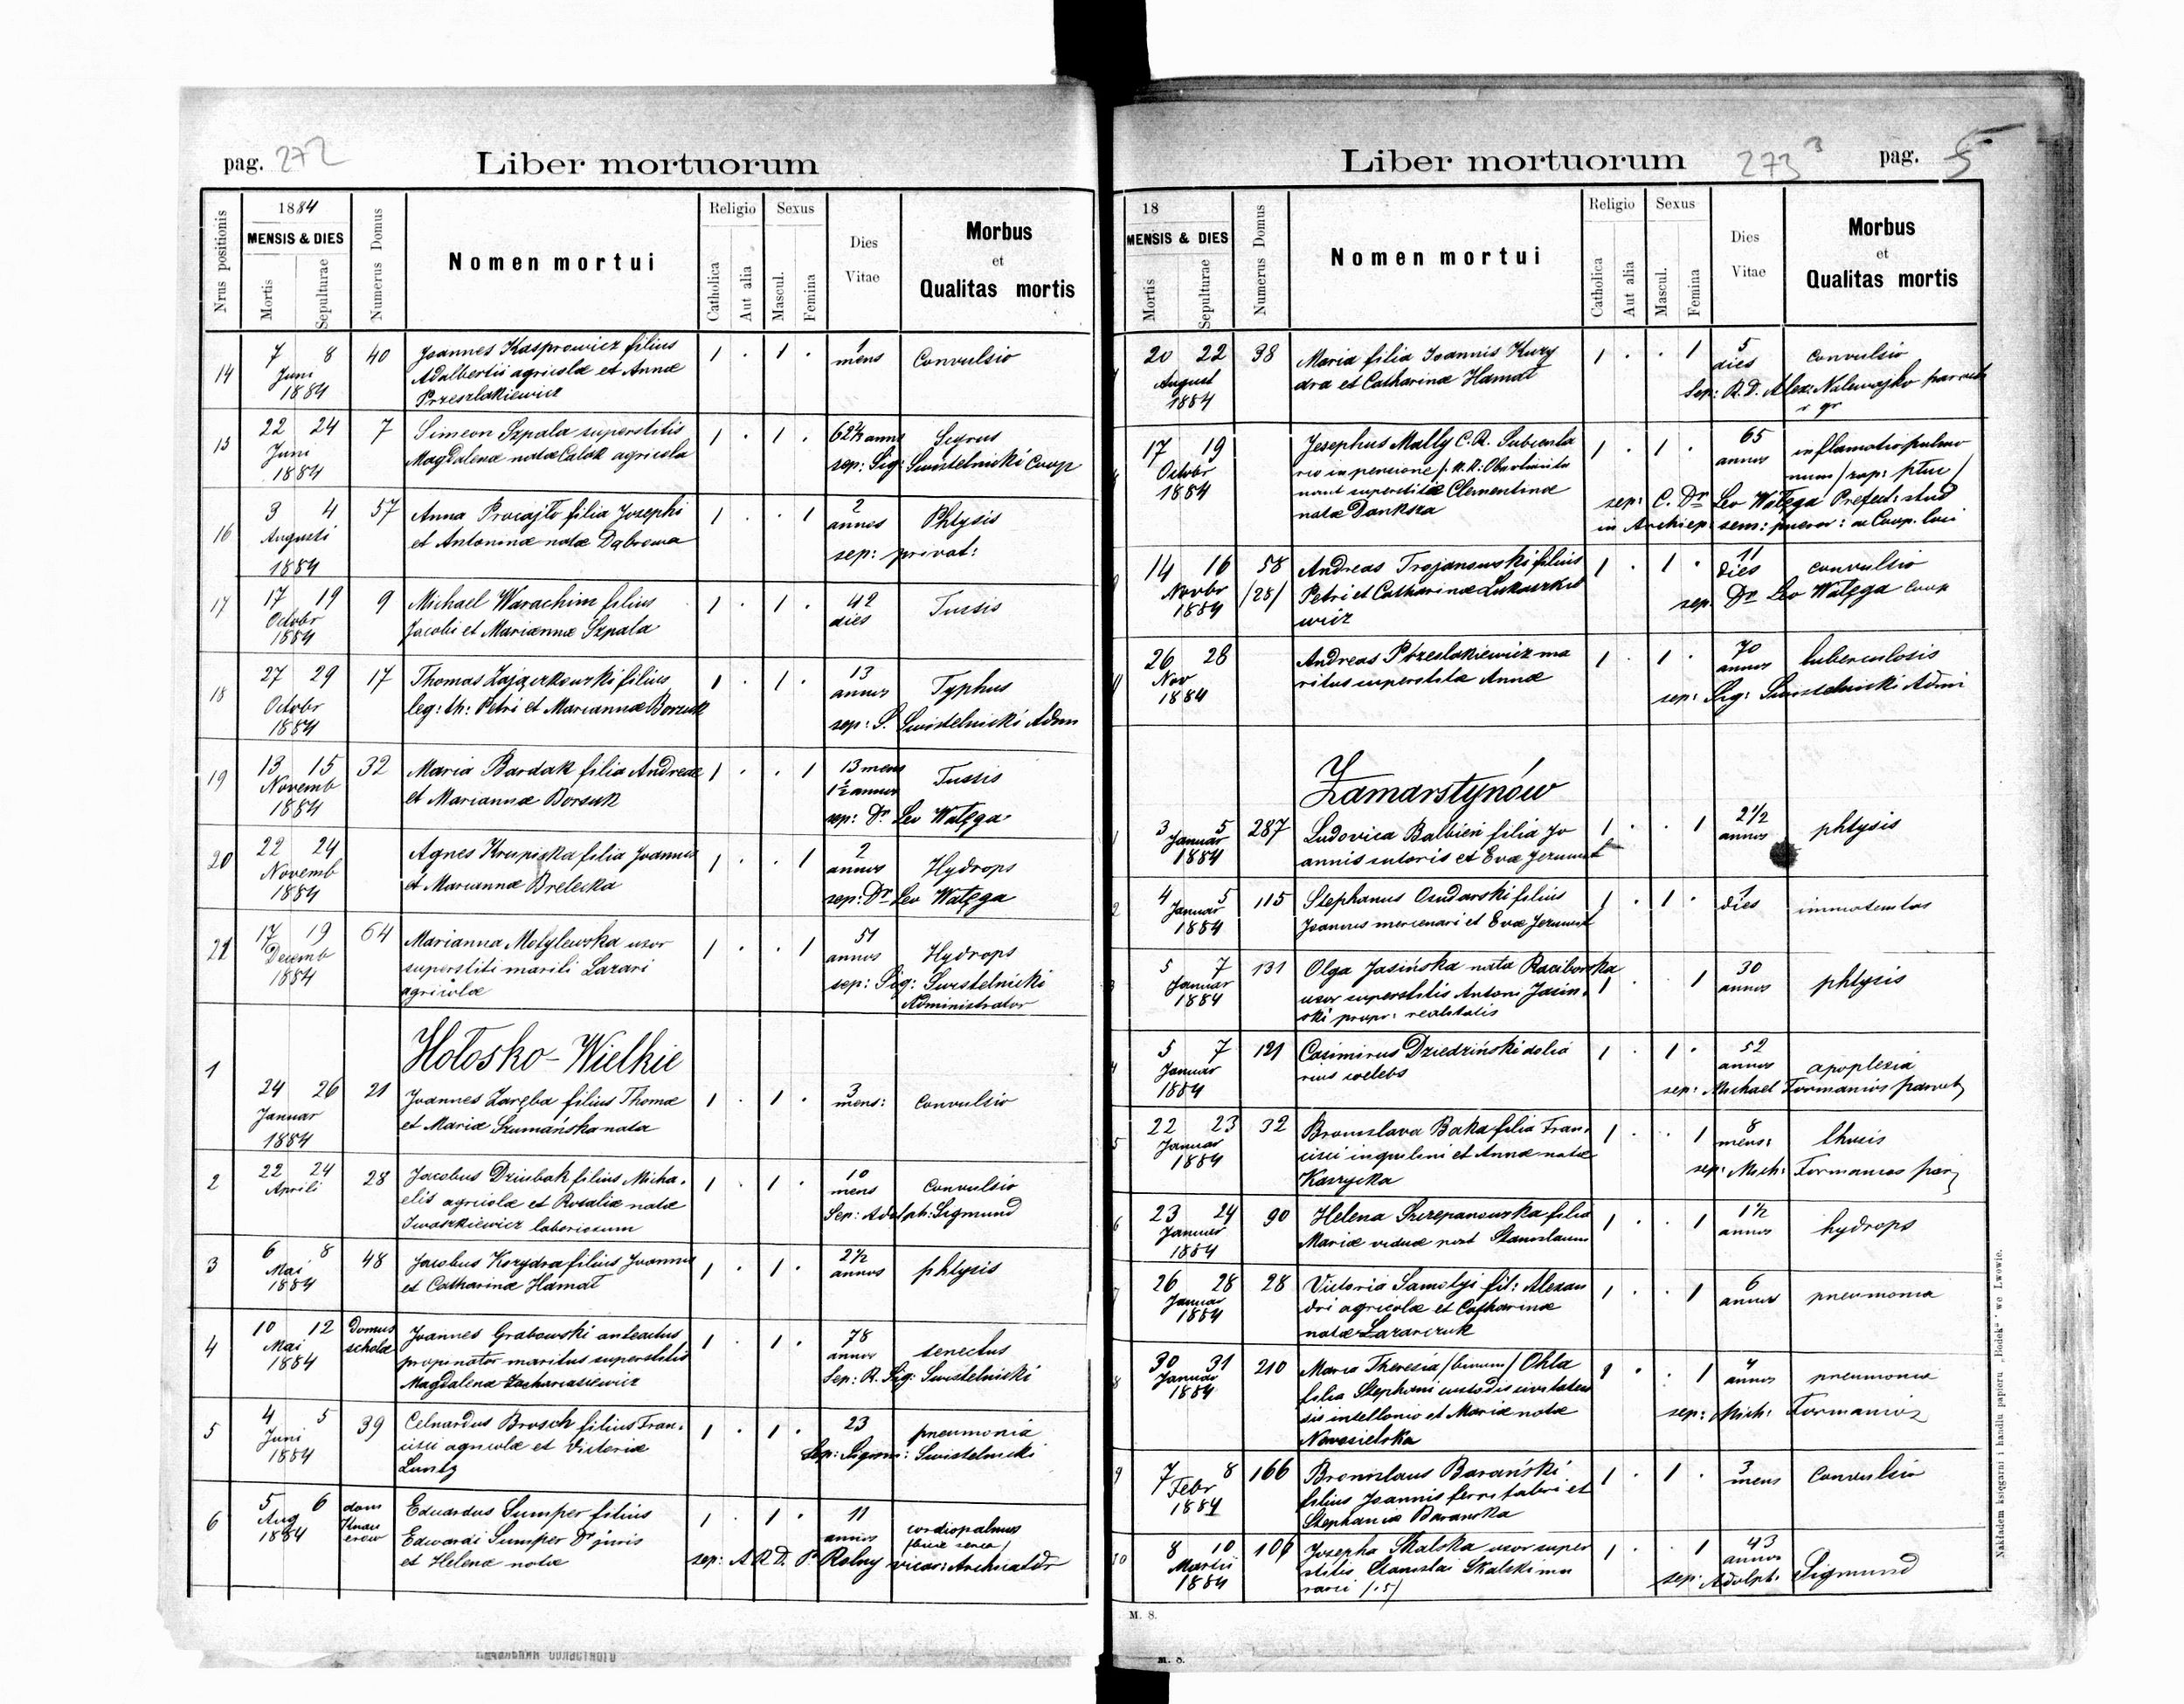 pag. 272
Liber mortuorum
Nrus positionis
1884
MENSIS & DIES
Mortis
Sepulturae
Numerus Domus
Nomen mortui
Religio
Catholica
Aut alia
Sexus
Mascul.
Femina
Dies
Vitae
Morbus
et
Qualitas mortis
14 7 8 40 Joannes Kasprowicz filius 1 . 1 . 1
Juni Adalberti agricolæ et Annæ mens Convulsio
1884 Przeszlakiewicz
15 22 24 7 Simeon Szpala superstitis 1 . 1 . 62½ anns
Juni Magdalenæ natæ Calak agricola sep: Sig: Swistelnicki Coop
1884
16 3 4 57 Anna Procajło filia Josephi 1 . . 1 2 Phtysis
Augusti et Antoninæ natæ Dąbrowa annos
1884 sep: privat:
17 17 19 9 Michael Warachim filius 1 . 1 . 42 Tussis
Octobr Jacobi et Mariannæ Szpala dies
1884
18 27 29 17 Thomas Zajączkowski filius 1 . 1 . 13 Typhus
Octobr leg: th: Petri et Mariannæ Borsuk annos
1884 sep: S. Swistelnicki Adm
19 13 15 32 Maria Bardak filia Andreæ 1 . . 1 13 mens Tussis
Novemb et Mariannæ Borsuk 1½ annos
1884 sep: Dr Leo Wałęga
20 22 24 Agnes Krupicka filia Joannis 1 . . 1 2
Novemb et Mariannæ Brelecka annos Hydrops
1884 sep: Dr Leo Wałęga
21 17 19 64 Marianna Motylewska uxor 1 . . 1 51
Decemb superstiti mariti Lazari annos Hydrops
1884 agricolæ sep: Sig: Swistelnicki
Administrator
Hołosko-Wielkie
1 24 26 21 Joannes Zaręba filius Thomæ 1 . 1 . 3
Januar et Mariæ Szumańska nata mens: Convulsio
1884
2 22 24 28 Jacobus Dziubak filius Micha- 1 . 1 . 10
Aprili elis agricolæ et Rosaliæ natæ mens Convulsio
Iwaszkiewicz laboriosum Sep: Adolph: Sigmund
3 6 8 48 Jacobus Kozydra filius Joannis 1 . 1 . 2½
Mai et Catharinæ Hamat annos phtysis
1884
4 10 12 Domus Joannes Grabowski anteactus 1 . 1 . 78
Mai scholæ propinator maritus superstitis annos senectus
1884 Magdalenæ Zachariasiewicz Sep: R. Sig: Swistelnicki
5 4 5 39 Brosch filius Fran- 1 . 1 . 23
Juni cisci agricolæ et Victoriæ pneumonia
1884 Luntz Sep: Sigism: Swistelnicki
6 5 6 dom Eduardus Sumper filius 1 . 1 . 11
Aug Edwardi Sumper Dr juris annos cordiopalmus
1884 et Helenæ natæ sep: A R D. Rolny vicar:
Liber mortuorum
273 pag. 5
18
MENSIS & DIES
Mortis
Sepulturae
Numerus Domus
Nomen mortui
Religio
Catholica
Aut alia
Sexus
Mascul.
Femina
Dies
Vitae
Morbus
et
Qualitas mortis
20 22 38 Maria filia Joannis Kuzy 1 . . 1 5
August dra et Catharinæ Hamat dies convulsio
1884 Sep: R. D. Alex: Nalewajko paroch
r gr
17 19 Josephus Mally C. R. Subcenta 1 . 1 . 65
Octobr rio in pensione annos inflamatio pulmo
1884 superstitis Clementinæ num
natæ Danksza sep: C. Dr Leo Wałęga Prefect: stud
in Archiep: sem: pueror: ac Coop. loci
14 16 58 Andreas Trojanowski filius 1 . 1 . 11
Novbr /28/ Petri et Catharinæ Lukaszke dies convulsio
1884 wicz sep: Dr Leo Wałęga Coop
26 28 Andreas Przeslakiewicz ma 1 . 1 . 70
Nov ritus superstitæ Annæ annos tuberculosis
1884 sep: Sig: Swistelnicki Admi
Zamarstynów
1 3 5 287 Ludovica Balbieri filia Jo 1 . . 1 2½
Januar annis sutoris et Evæ annos phtysis
1884
2 4 5 115 Stephanus Osudarski filius 1 . 1 . 1
Januar Joannis mercenari et Evæ dies
1884
3 5 7 131 Olga Jasińska nata Raciborska 1 . . 1 30
Januar uxor superstitis Antoni Jasiń- annos phtysis
1884 ski propr: realitatis
4 5 7 121 Casimirus Dziedziński dolia 1 . 1 . 52
Januar rius coelebs annos apoplexia
1884 sep: Michael Formanios paroch
5 22 23 32 Bronislava Baka filia Fran- 1 . . 1 8
Januar cisci inquilini et Annæ natæ mens:
1884 Karzycka sep: Mich: Formanios par
6 23 24 90 Helena Szczepanowska filia 1 . . 1 1½
Januar Mariæ viduæ post Stanislaum annos hydrops
1884
7 26 28 28 Victoria Samolyj fil: Alexan 1 . . 1 6
Januar dri agricolæ et Catharinæ annos pneumonia
1884 natæ Lazarczuk
8 30 31 210 Maria Theresia /binum/ Ohla 1 . . 1 4
Januar filia Stephani custodis annos pneumonia
1884 et Mariæ natæ sep: Mich: Formanios
Nowosielska
9 7 8 166 Bronislaus Barański 1 . 1 . 3
Febr filius Joannis ferri fabri et mens Convulsio
1884 Stephaniæ Baranska
10 8 10 106 Josepha Skalska uxor super 1 . . 1 43
Martii stitis Stanislai Skalski mu annos
1884 rarii /:5/ sep: Adolph: Sigmund
M. 8.
M. 8.
Nakładem księgarni i handlu papieru „Bodek“ we Lwowie.